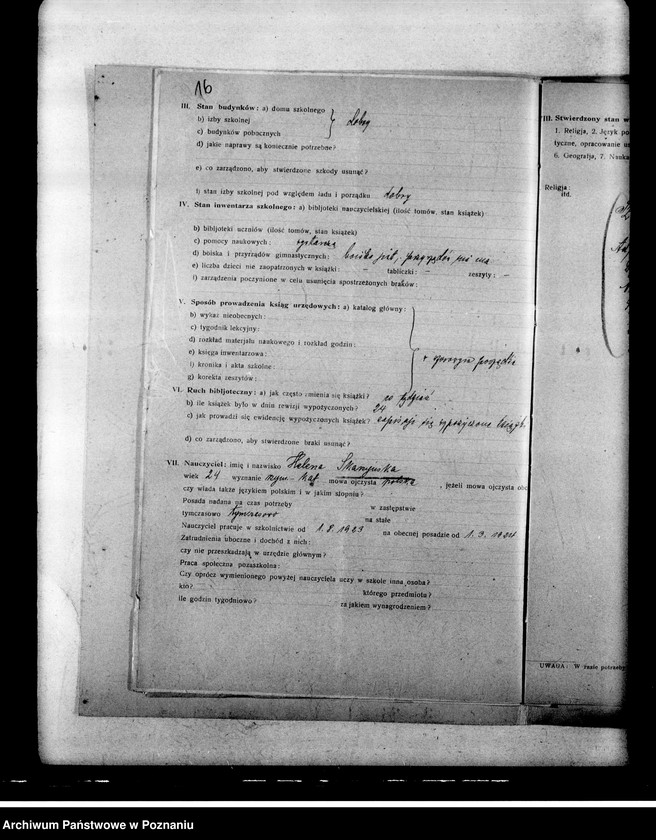 16
III. Stan budynków: a) domu szkolnego
b) izby szkolnej
dobry
c) budynków pobocznych
d) jakie naprawy są koniecznie potrzebne?
e) co zarządzono, aby stwierdzone szkody usunąć?
f) stan izby szkolnej pod względem ładu i porządku dobry
IV. Stan inwentarza szkolnego: a) bibljoteki nauczycielskiej (ilość tomów, stan książek)
b) bibljoteki uczniów (ilość tomów, stan książek)
c) pomocy naukowych:
d) boiska i przyrządów gimnastycznych: boisko jest, przyrządów nie ma
e) liczba dzieci nie zaopatrzonych w książki: – tabliczki: – zeszyty: –
f) zarządzenia poczynione w celu usunięcia spostrzeżonych braków:
V. Sposób prowadzenia ksiąg urzędowych: a) katalog główny:
b) wykaz nieobecnych:
c) tygodnik lekcyjny:
d) rozkład materjału naukowego i rozkład godzin:
e) księga inwentarzowa:
f) kronika i akta szkolne:
g) korekta zeszytów:
VI. Ruch bibljoteczny: a) jak często zmienia się książki? co tydzień
b) ile książek było w dniu rewizji wypożyczonych? 24
c) jak prowadzi się ewidencję wypożyczonych książek? zapisuje się wypożyczone książk.
d) co zarządzono, aby stwierdzone braki usunąć?
VII. Nauczyciel: imię i nazwisko Helena
wiek 24 wyznanie rzym.-kat. mowa ojczysta polska, jeżeli mowa ojczysta obc
czy włada także językiem polskim i w jakim stopniu?
Posada nadana na czas potrzeby w zastępstwie
tymczasowo tymczasowo na stałe
Nauczyciel pracuje w szkolnictwie od 1.8.1923 na obecnej posadzie od 1.9.1924
Zatrudnienia uboczne i dochód z nich:
czy nie przeszkadzają w urzędzie głównym?
Praca społeczna pozaszkolna:
Czy oprócz wymienionego powyżej nauczyciela uczy w szkole inna osoba?
kto? którego przedmiotu?
ile godzin tygodniowo? za jakiem wynagrodzeniem?
VIII. Stwierdzony stan w
1. Religja, 2. Język po
tyczne, opracowanie us
6. Geografja, 7. Nauka
Religja:
itd.
UWAGA: W razie potrzeby
Archiwum Państwowe w Poznaniu